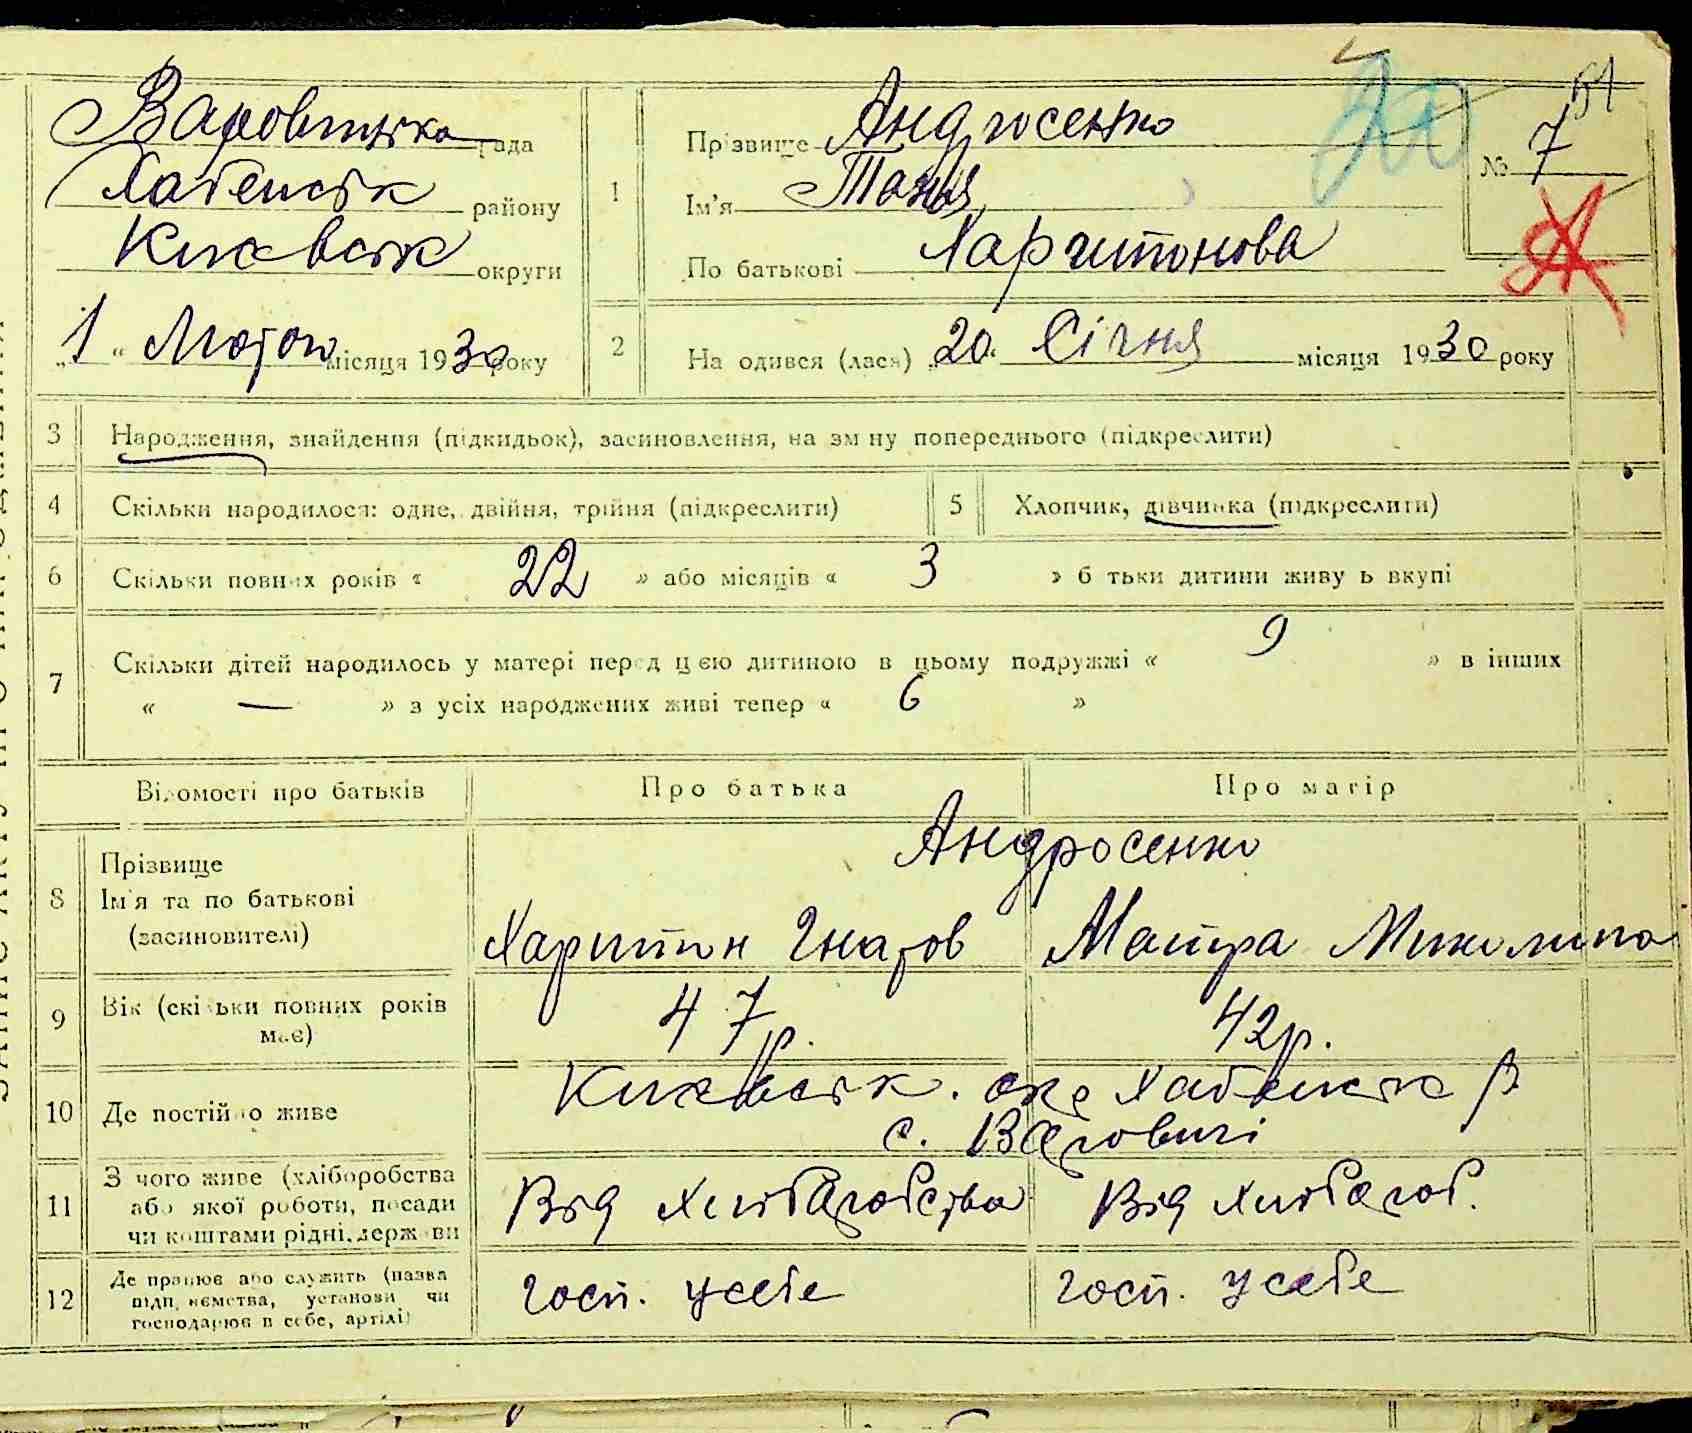 Варовицька рада
Хабенськ району
Київськ округи
„1“ Лютого місяця 1930 року
1 Прізвище Андросенко
Ім'я Таня
По батькові Харитонова
№ 7
51
2 На одився (лася) „20“ Січня місяця 1930 року
3 Народження, знайдення (підкидьок), засиновлення, на зм ну попереднього (підкреслити)
4 Скільки народилося: одне, двійня, трійня (підкреслити) 5 Хлопчик, дівчинка (підкреслити)
6 Скільки повних років « 22 » або місяців « 3 » б тьки дитини живу ь вкупі
7 Скільки дітей народилось у матері перед цією дитиною в цьому подружжі « 9 » в інших
« — » з усіх народжених живі тепер « 6 »
Відомості про батьків Про батька Про матір
8 Прізвище
Ім'я та по батькові
(засиновителі)
Андросенко
Харитон Гнатов Мотра Миколаєва
9 Вік (скільки повних років має) 47 р. 42 р.
10 Де постійно живе
Київськ. окр Хабенськ р
с. Варовичі
11 З чого живе (хліборобства
або якої роботи, посади
чи коштами рідні, держави
Від Хліборобства Від хлібороб.
12 Де працює або служить (назва
підп ємства, установи чи
господарює в себе, артілі)
госп. у себе госп. у себе